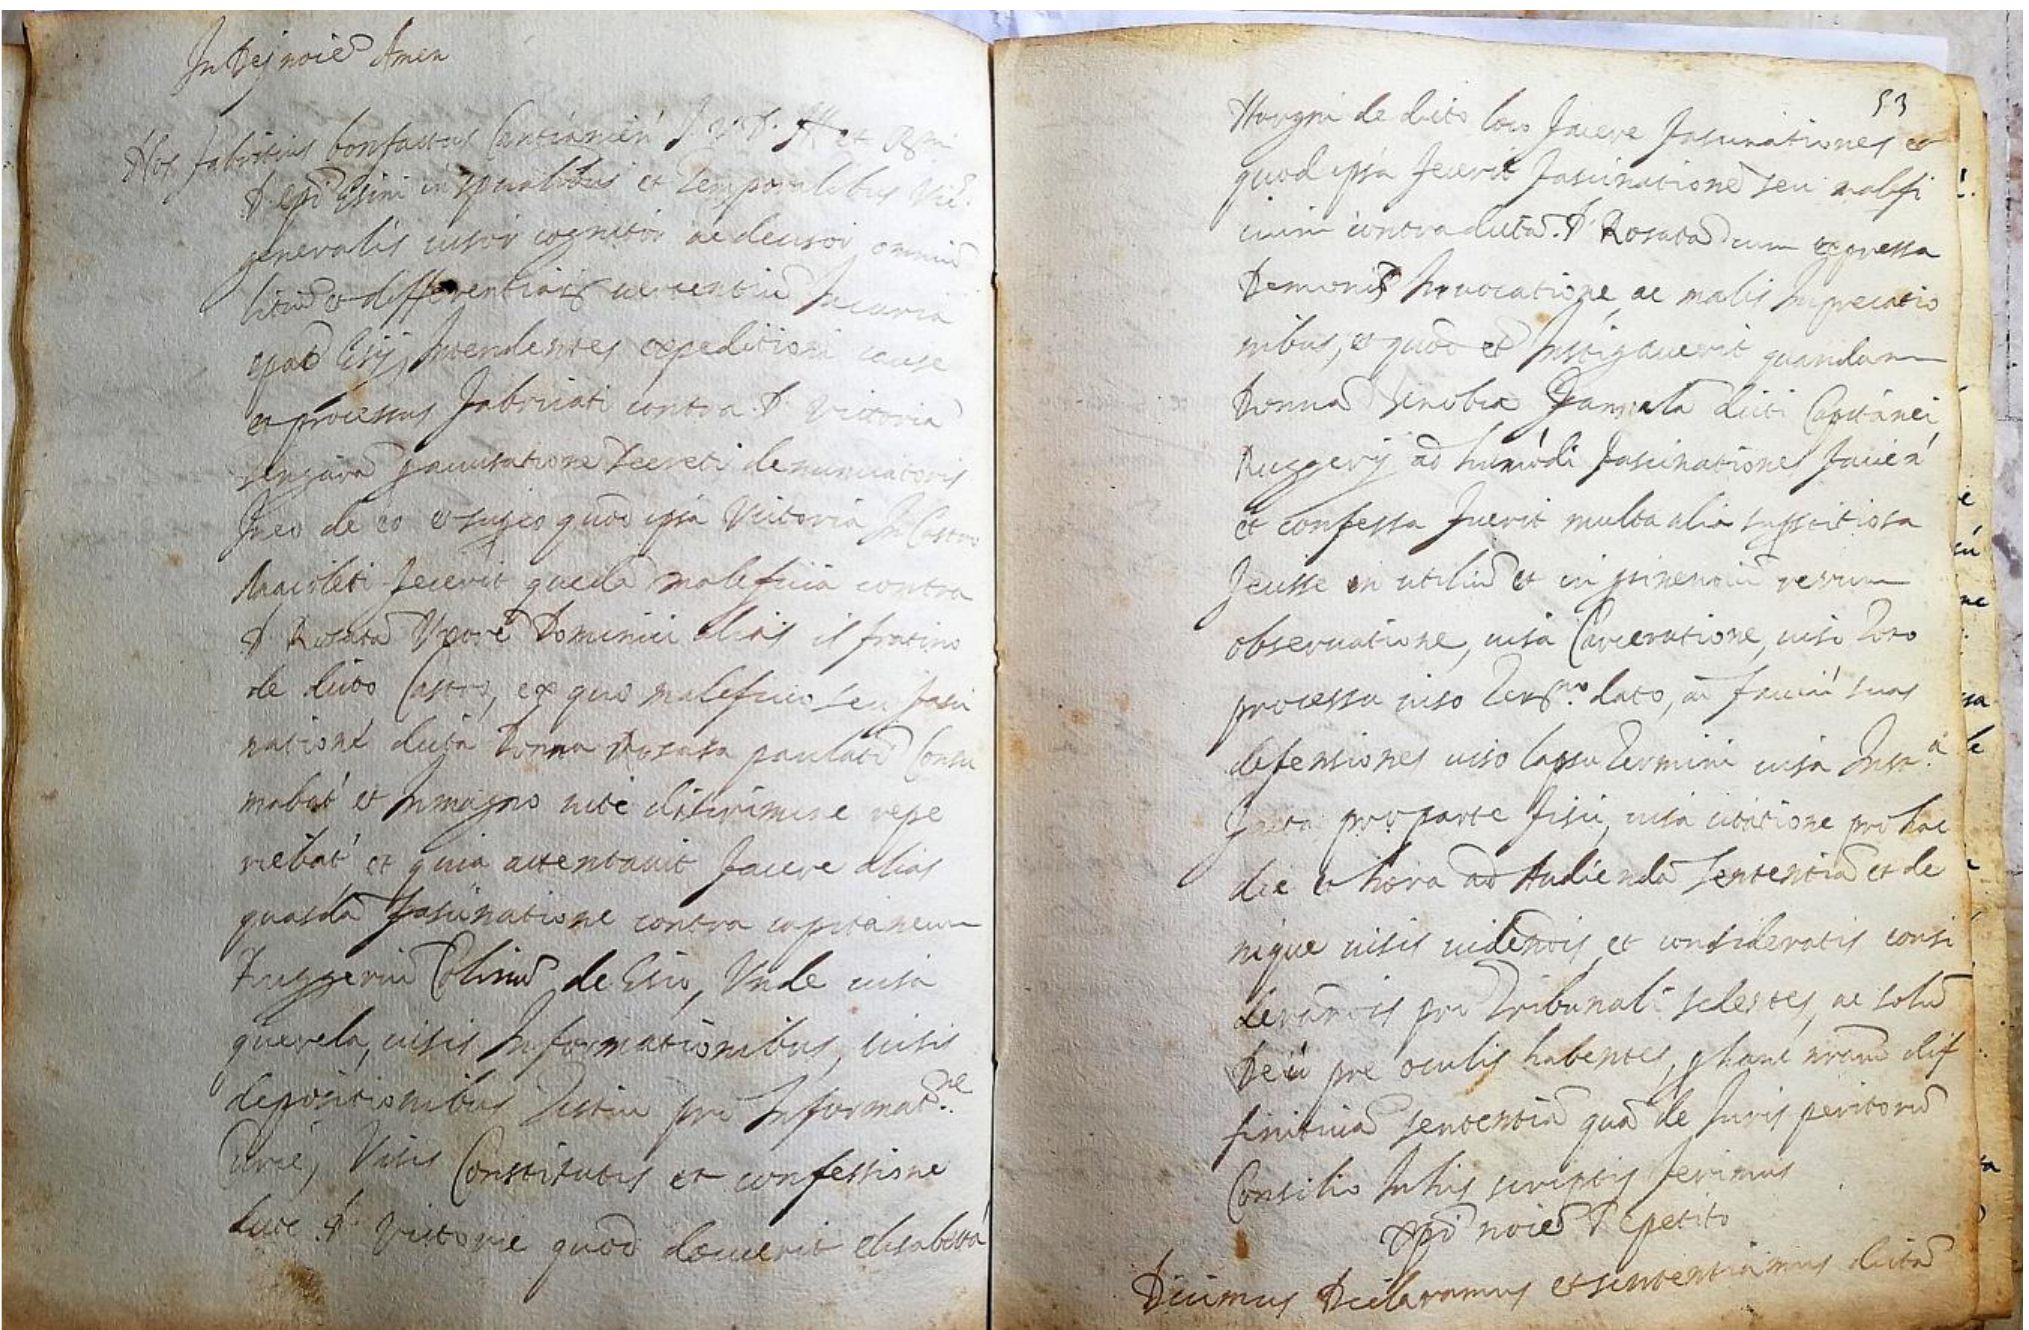 In Dei noie Amen
Nos fabritius bonfattus Cantianen' J. V. D. Ill et Rmi
D. epi Esini in spualibus et Temporalibus Vic.
generalis cognitor ac decisor omniu
litiu et differentiar vertentiu In curia
epali Esij, Intendentes expeditioni cause
et processus fabricati contra D. Victoria
accusatione secreti denunciatoris
In eo de eo et quod ipsa Victoria In Castro
Maioleti fecerit queda maleficia contra
D. Rosata Uxore Dominici alias il fratino
de dicto Castro, ex quo maleficio seu fasci
natione dicta Donna Rosata paulati Consu
mabat' et In magno vite discrimine repe
riebat' et quia attentavit facere alias
quasda fascinatione contra capitaneum
Ruggeriu Colinu de Esio, Unde visa
querela, visis Informationibus, visis
depositionibus Testiu pro Informat.ne
Curie, Visis Constitutis et confessione
dicte D. Victorie quod docuerit elisabetta
53
de dicto loco facere fascinationes et
quod ipsa fecerit fascinatione seu malefi
cium contra dicta D. Rosata cum expressa
Demonis Invocatione, ac malis Imprecatio
nibus, et quod et Instigaverit quandam
Donna Zenobia dicti Capitanei
Ruggerij ad humodi fascinationes facien'
et confessa fuerit multa alia superstitiosa
fecisse in utiliu et in reverum
observatione, visa Carceratione, viso Toto
processu viso Term.no dato, ad faciend suas
defensiones viso lapsu Termini visa
facta pro parte fisci, visa citatione pro hac
die et hora ad Audienda Sententia et de
nique visis videndis et consideratis consi
derandis pro Tribunali sedentes, ac solu
Deu pre oculis habentes, p hanc nram dif
finitiva sententia qua de Juris peritoru
Consilio In his scriptis ferimus
Xpi noie Repetito
Dicimus Declaramus et sententiamus dicta